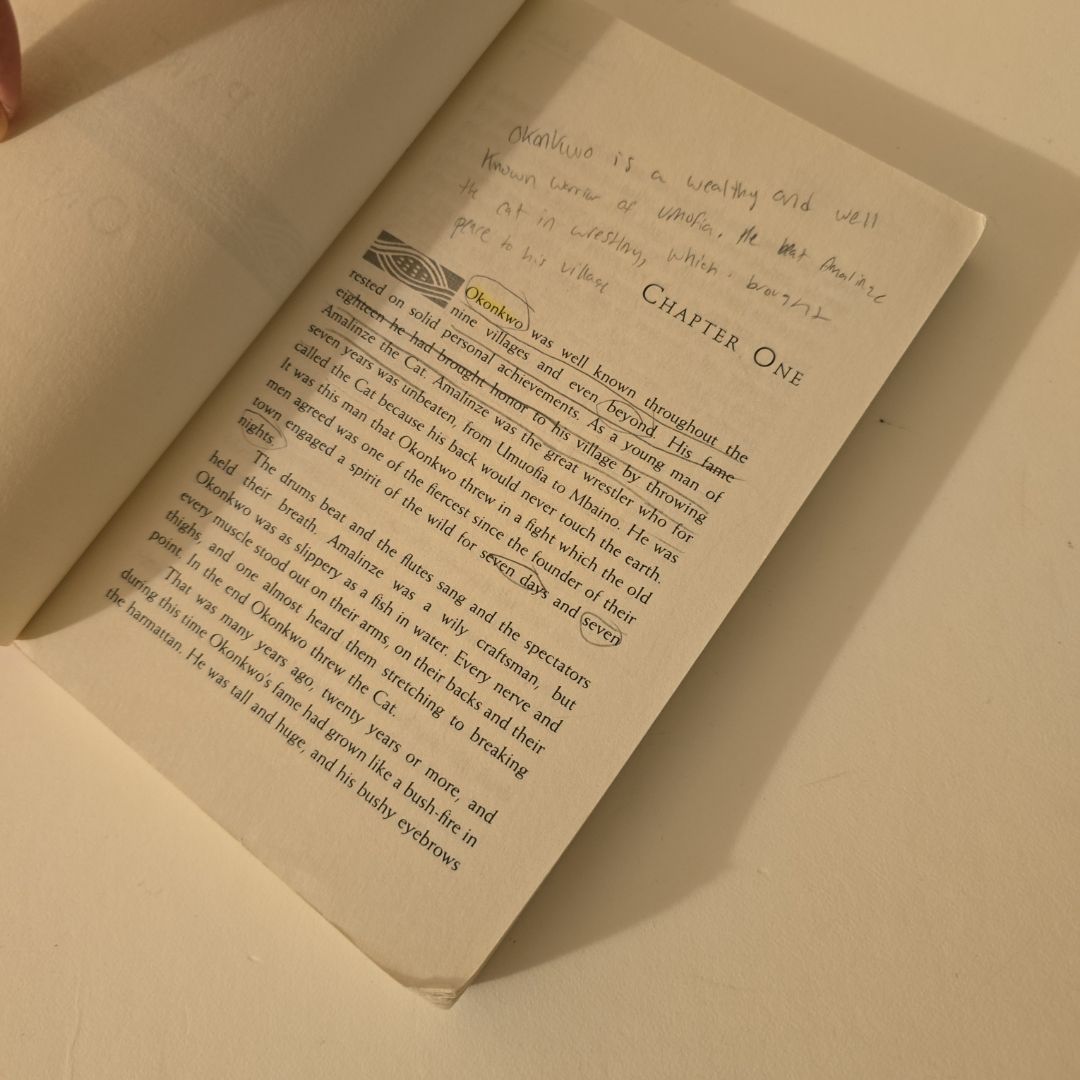 Okonkwo is a wealthy and well
Known warrior of Umofia. He beat Amalinze
the cat in wrestlny, which brought
peace to his village
CHAPTER ONE
Okonkwo was well known throughout the
nine villages and even beyond. His fame
rested on solid personal achievements. As a young man of
eighteen he had brought honor to his village by throwing
Amalinze the Cat. Amalinze was the great wrestler who for
seven years was unbeaten, from Umuofia to Mbaino. He was
called the Cat because his back would never touch the earth.
It was this man that Okonkwo threw in a fight which the old
men agreed was one of the fiercest since the founder of their
town engaged a spirit of the wild for seven days and seven
nights.
The drums beat and the flutes sang and the spectators
held their breath. Amalinze was a wily craftsman, but
Okonkwo was as slippery as a fish in water. Every nerve and
every muscle stood out on their arms, on their backs and their
thighs, and one almost heard them stretching to breaking
point. In the end Okonkwo threw the Cat.
That was many years ago, twenty years or more, and
during this time Okonkwo's fame had grown like a bush-fire in
the harmattan. He was tall and huge, and his bushy eyebrows